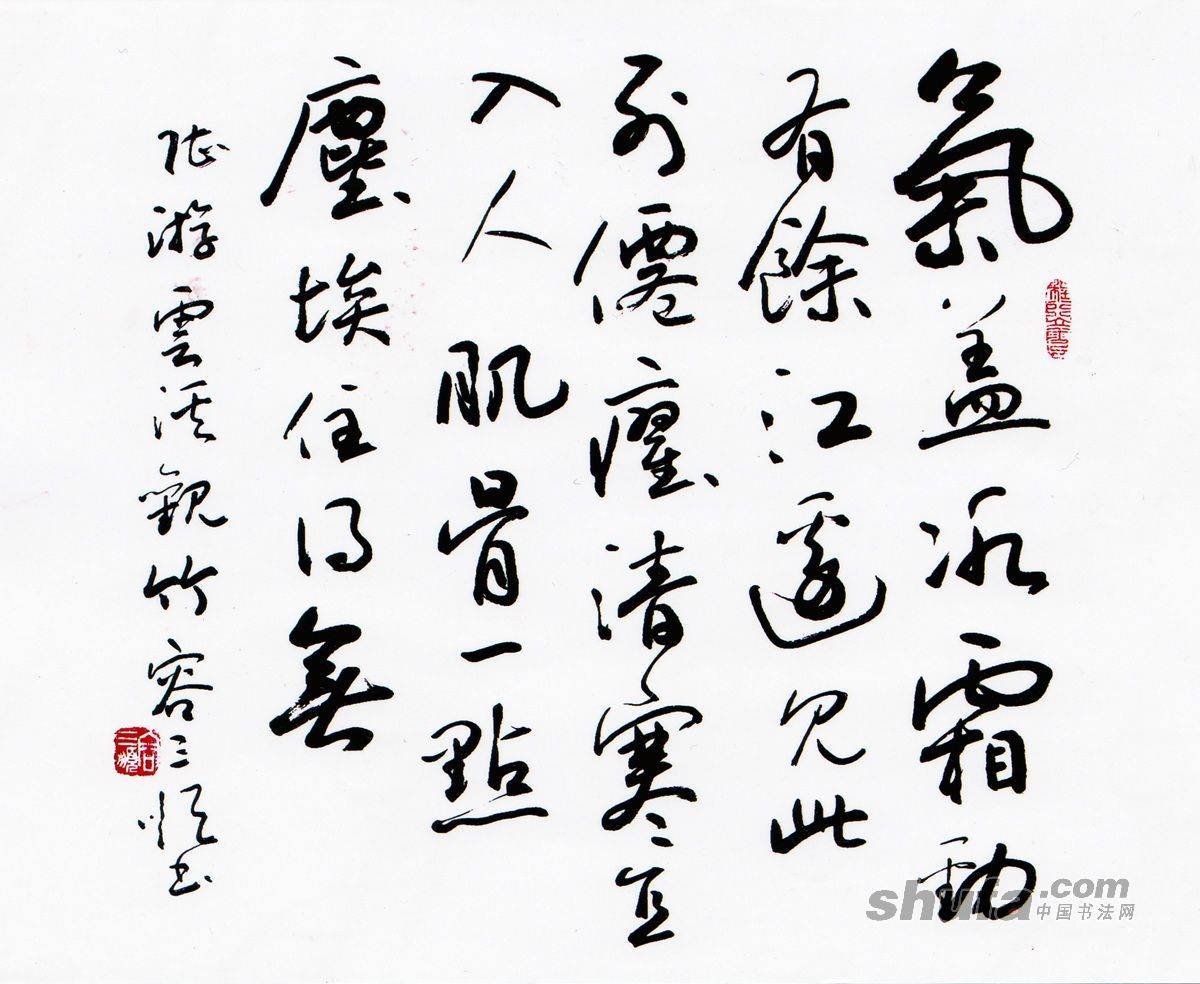 氣盖冰霜勁
有餘江邊見此
列僊癯清寒直
入人肌骨一點
塵埃住得無
陸游雲溪觀竹 容三書
shufa.com
中国书法网